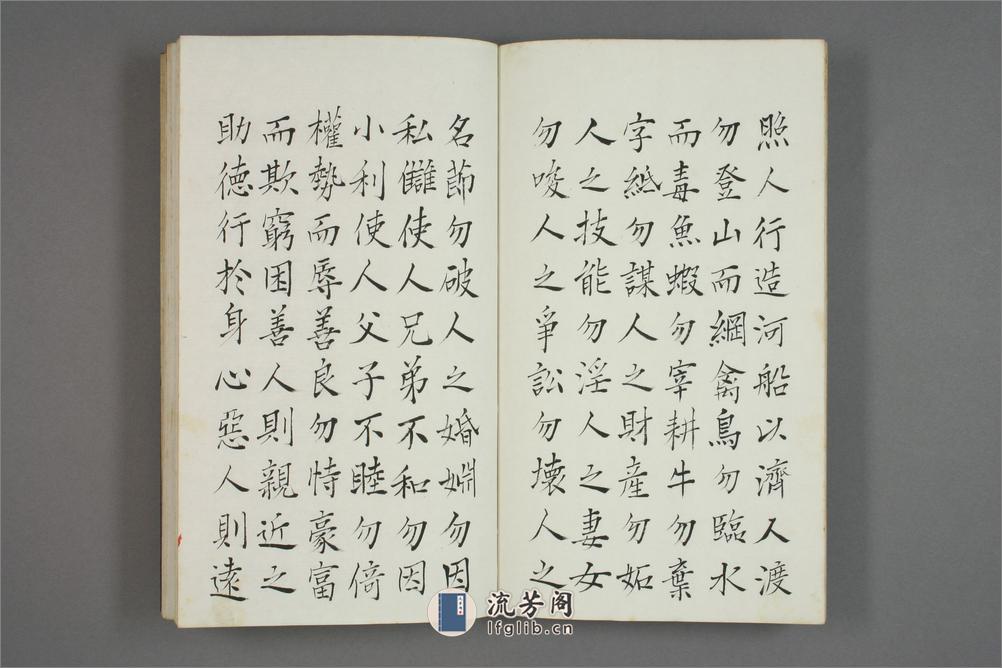 照人行造河船以濟人渡
勿登山而網禽鳥勿臨水
而毒魚蝦勿宰耕牛勿棄
字紙勿謀人之財產勿妬
人之技能勿淫人之妻女
勿唆人之爭訟勿壞人之
名莭勿破人之婚婣勿因
私讎使人兄弟不和勿因
小利使人父子不睦勿倚
權勢而辱善良勿恃豪富
而欺窮困善人則親近之
助德行於身心惡人則遠
流芳阁
lfglib.cn